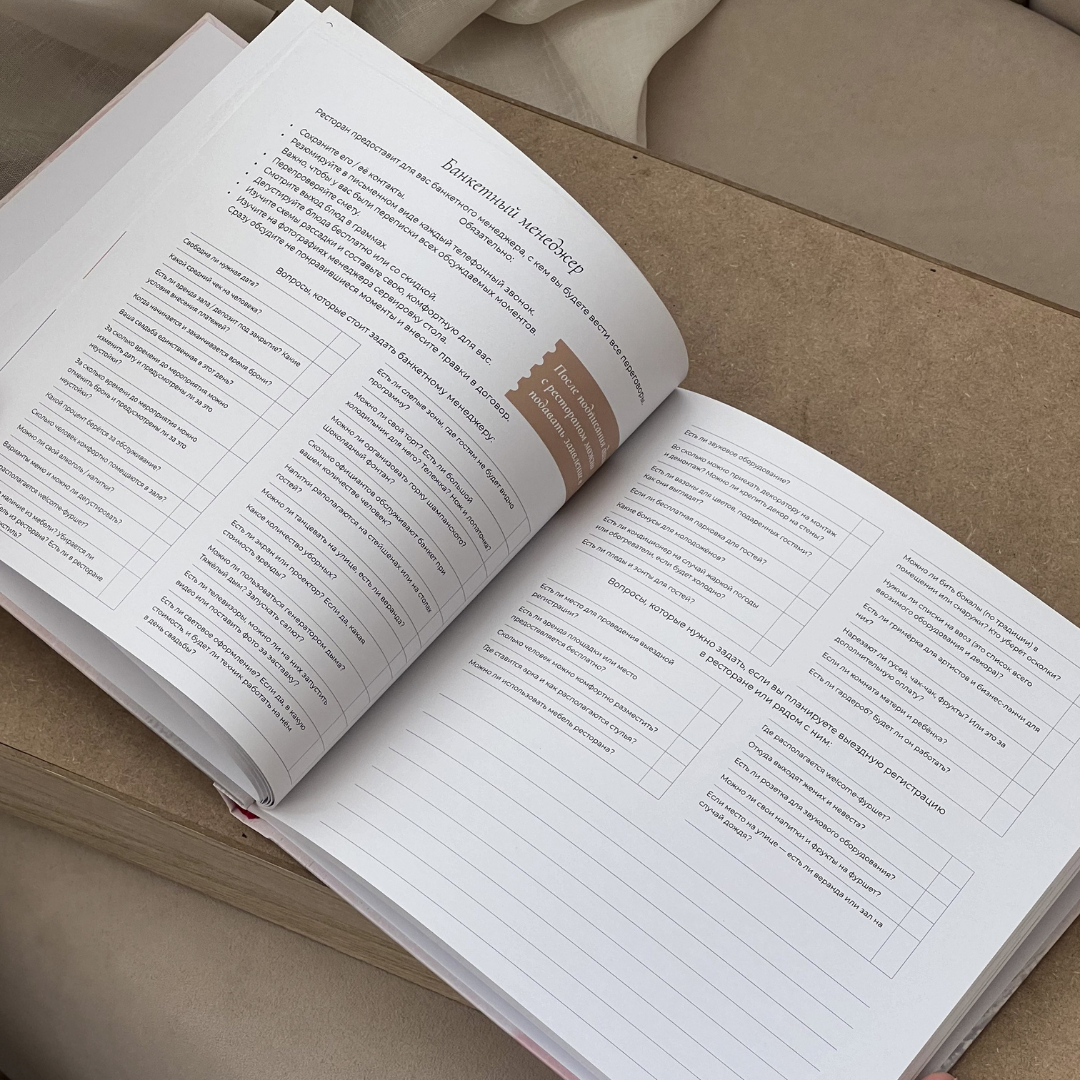 Банкетный менеджер
Ресторан предоставит для вас банкетного менеджера, с кем вы будете вести все переговоры.
Обязательно:
• Сохраните его / её контакты.
• Резюмируйте в письменном виде каждый телефонный звонок.
• Важно, чтобы у вас были переписки всех обсуждаемых моментов.
• Перепроверяйте смету.
• Смотрите выход блюд в граммах.
• Дегустируйте блюда бесплатно или со скидкой.
• Изучите схемы рассадки и составьте свою, комфортную для вас.
Изучите на фотографиях менеджера сервировку стола.
Сразу обсудите не понравившиеся моменты и внесите правки в договор.
После подписания
с рестораном
подавать заявление
Вопросы, которые стоит задать банкетному менеджеру:
Свободна ли нужная дата?
Какой средний чек на человека?
Есть ли аренда зала / депозит под закрытие? Какие
условия внесения платежей?
Когда начинается и заканчивается время брони?
Ваша свадьба единственная в этот день?
За сколько времени до мероприятия можно
изменить дату и предусмотрены ли за это
неустойки?
За сколько времени до мероприятия можно
отменить бронь и предусмотрены ли за это
неустойки?
Какой процент берётся за обслуживание?
Сколько человек комфортно помещается в зале?
Можно ли свой алкоголь / напитки?
Варианты меню и можно ли дегустировать?
располагается welcome-фуршет?
наличие из мебели? Убирается ли
из ресторана? Есть ли в ресторане
Есть ли слепые зоны, где гостям не будет видно
программу?
Можно ли свой торт? Есть ли большой
холодильник для него? Тележка? Нож и лопаточка?
Можно ли организовать горку шампанского?
Шоколадный фонтан?
Сколько официантов обслуживают банкет при
вашем количестве человек?
Напитки располагаются на стейшенах или на столах
гостей?
Можно ли танцевать на улице, есть ли веранда?
Какое количество уборных?
Есть ли экран или проектор? Если да, какая
стоимость аренды?
Можно ли пользоваться генератором дыма?
Тяжёлый дым? Запускать салют?
Есть ли телевизоры, можно ли на них запустить
видео или поставить фото за заставку?
Есть ли световое оформление? Если да, в какую
стоимость и будет ли техник работать на нём
в день свадьбы?
Есть ли звуковое оборудование?
Во сколько можно приехать декоратору на монтаж
и демонтаж? Можно ли крепить декор на стены?
Есть ли вазоны для цветов, подаренных гостями?
Как они выглядят?
Если ли бесплатная парковка для гостей?
Какие бонусы для молодожёнов?
Есть ли кондиционер на случай жаркой погоды
или обогреватели, если будет холодно?
Есть ли пледы и зонты для гостей?
Можно ли бить бокалы (по традиции) в
помещении или снаружи? Кто уберёт осколки?
Нужны ли списки на ввоз (это список всего
ввозимого оборудования и декора)?
Есть ли гримёрка для артистов и бизнес-ланчи для
них?
Нарезают ли гусей, чак-чак, фрукты? Или это за
дополнительную оплату?
Если ли комната матери и ребёнка?
Есть ли гардероб? Будет ли он работать?
Вопросы, которые нужно задать, если вы планируете выездную регистрацию
в ресторане или рядом с ним:
Есть ли место для проведения выездной
регистрации?
Есть ли аренда площадки или место
предоставляется бесплатно?
Сколько человек можно комфортно разместить?
Где ставится арка и как располагаются стулья?
Можно ли использовать мебель ресторана?
Где располагается welcome-фуршет?
Откуда выходят жених и невеста?
Есть ли розетка для звукового оборудования?
Можно ли свои напитки и фрукты на фуршет?
Если место на улице — есть ли веранда или зал на
случай дождя?